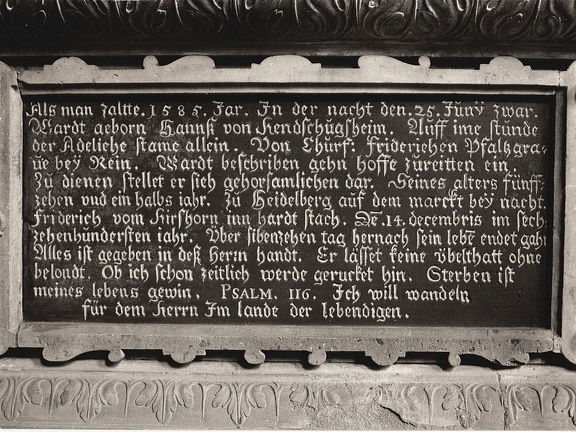 Als man zaltte. 1585. Jar. In der nacht den. 25. Juny zwar.
Wardt geborn Hannß von Hendschugsheim. Auff ime stunde
der Adeliche stame allein. Von Churf: Friderichen Pfaltzgra-
ue bey Rein. Wardt beschriben gehn hoffe zureitten ein.
Zu dienen stellet er sich gehorsamlichen dar. Seines alters fünff-
zehen vnd ein halbs iahr. Zu Heidelberg auf dem marckt bey nacht.
Friderich vom Hirshorn inn hardt stach. Dē. 14. decembris im sech-
zehenhundersten iahr. Vber sibenzehen tag hernach sein lebē endet gahr
Alles ist gegeben in deß herrn handt. Er lässet keine vbelthatt ohne
belondt. Ob ich schon zeitlich werde gerucket hin. Sterben ist
meines lebens gewin. PSALM. 116. Ich will wandeln
für dem herrn Im lande der lebendigen.